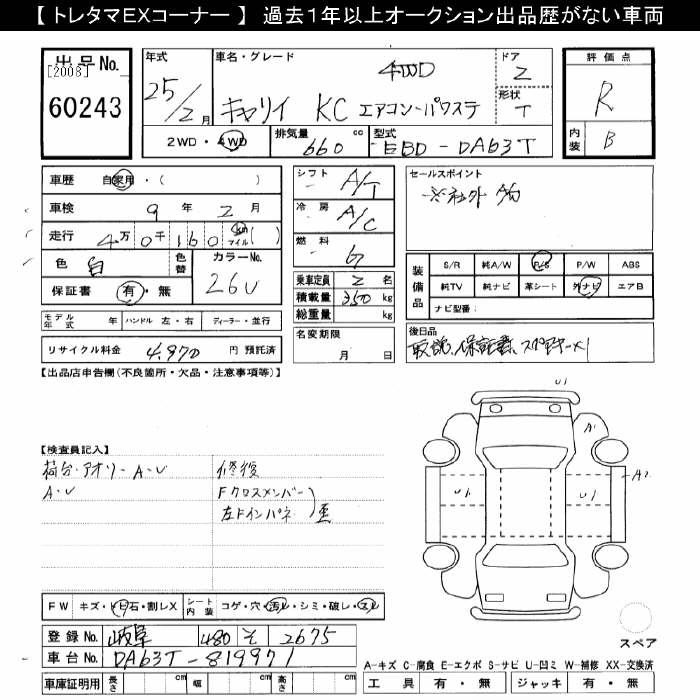 【 トレタマEXコーナー 】 過去1年以上オークション出品歴がない車両
出品No. [2008] 60243
年式 25/2月
車名・グレード 4WD キャリイ KC エアコン・パワステ
ドア 2
形状 T
評価点 R
内装 B
2WD・4WD 排気量 660 cc 型式 EBD-DA63T
車歴 自家用・( )
車検 9年 2月
走行 4万0千160 km マイル ( )
色 白 色替 カラーNo. 26U
保証書 有・無
シフト A/T
冷房 A/C
燃料 G
乗車定員 2名
積載量 350 kg
総重量 kg
セールスポイント
装備品 S/R 純A/W P/S P/W ABS
純TV 純ナビ 革シート 外ナビ エアB
ナビ型番:
モデル年式 年 ハンドル 左・右 ディーラー・並行
リサイクル料金 4,970 円 預託済
名変期限 月 日
後日品
取説、保証書、スペアキー×1
【出品店申告欄(不良箇所・欠品・注意事項等)】
【検査員記入】
荷台・アオリーA・U 修復
A・U Fクロスメンバー
左Fインパネ
U1
A1
A2
U1 U1
スペア
FW キズ・トビ石・割レX シート内装 コゲ・穴・汚レ・シミ・破レ・スレ
登録No. 岐阜 480 そ 2675
車台No. DA63T-819971
車庫証明用 長さ cm 幅 cm 高さ cm
A-キズ C-腐食 E-エクボ S-サビ U-凹ミ W-補修 XX-交換済
工具 有・無 ジャッキ 有・無